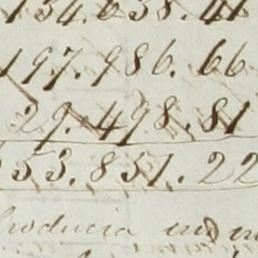 134.638.41
197.986.66
29.498.81
53.851.22
producia en